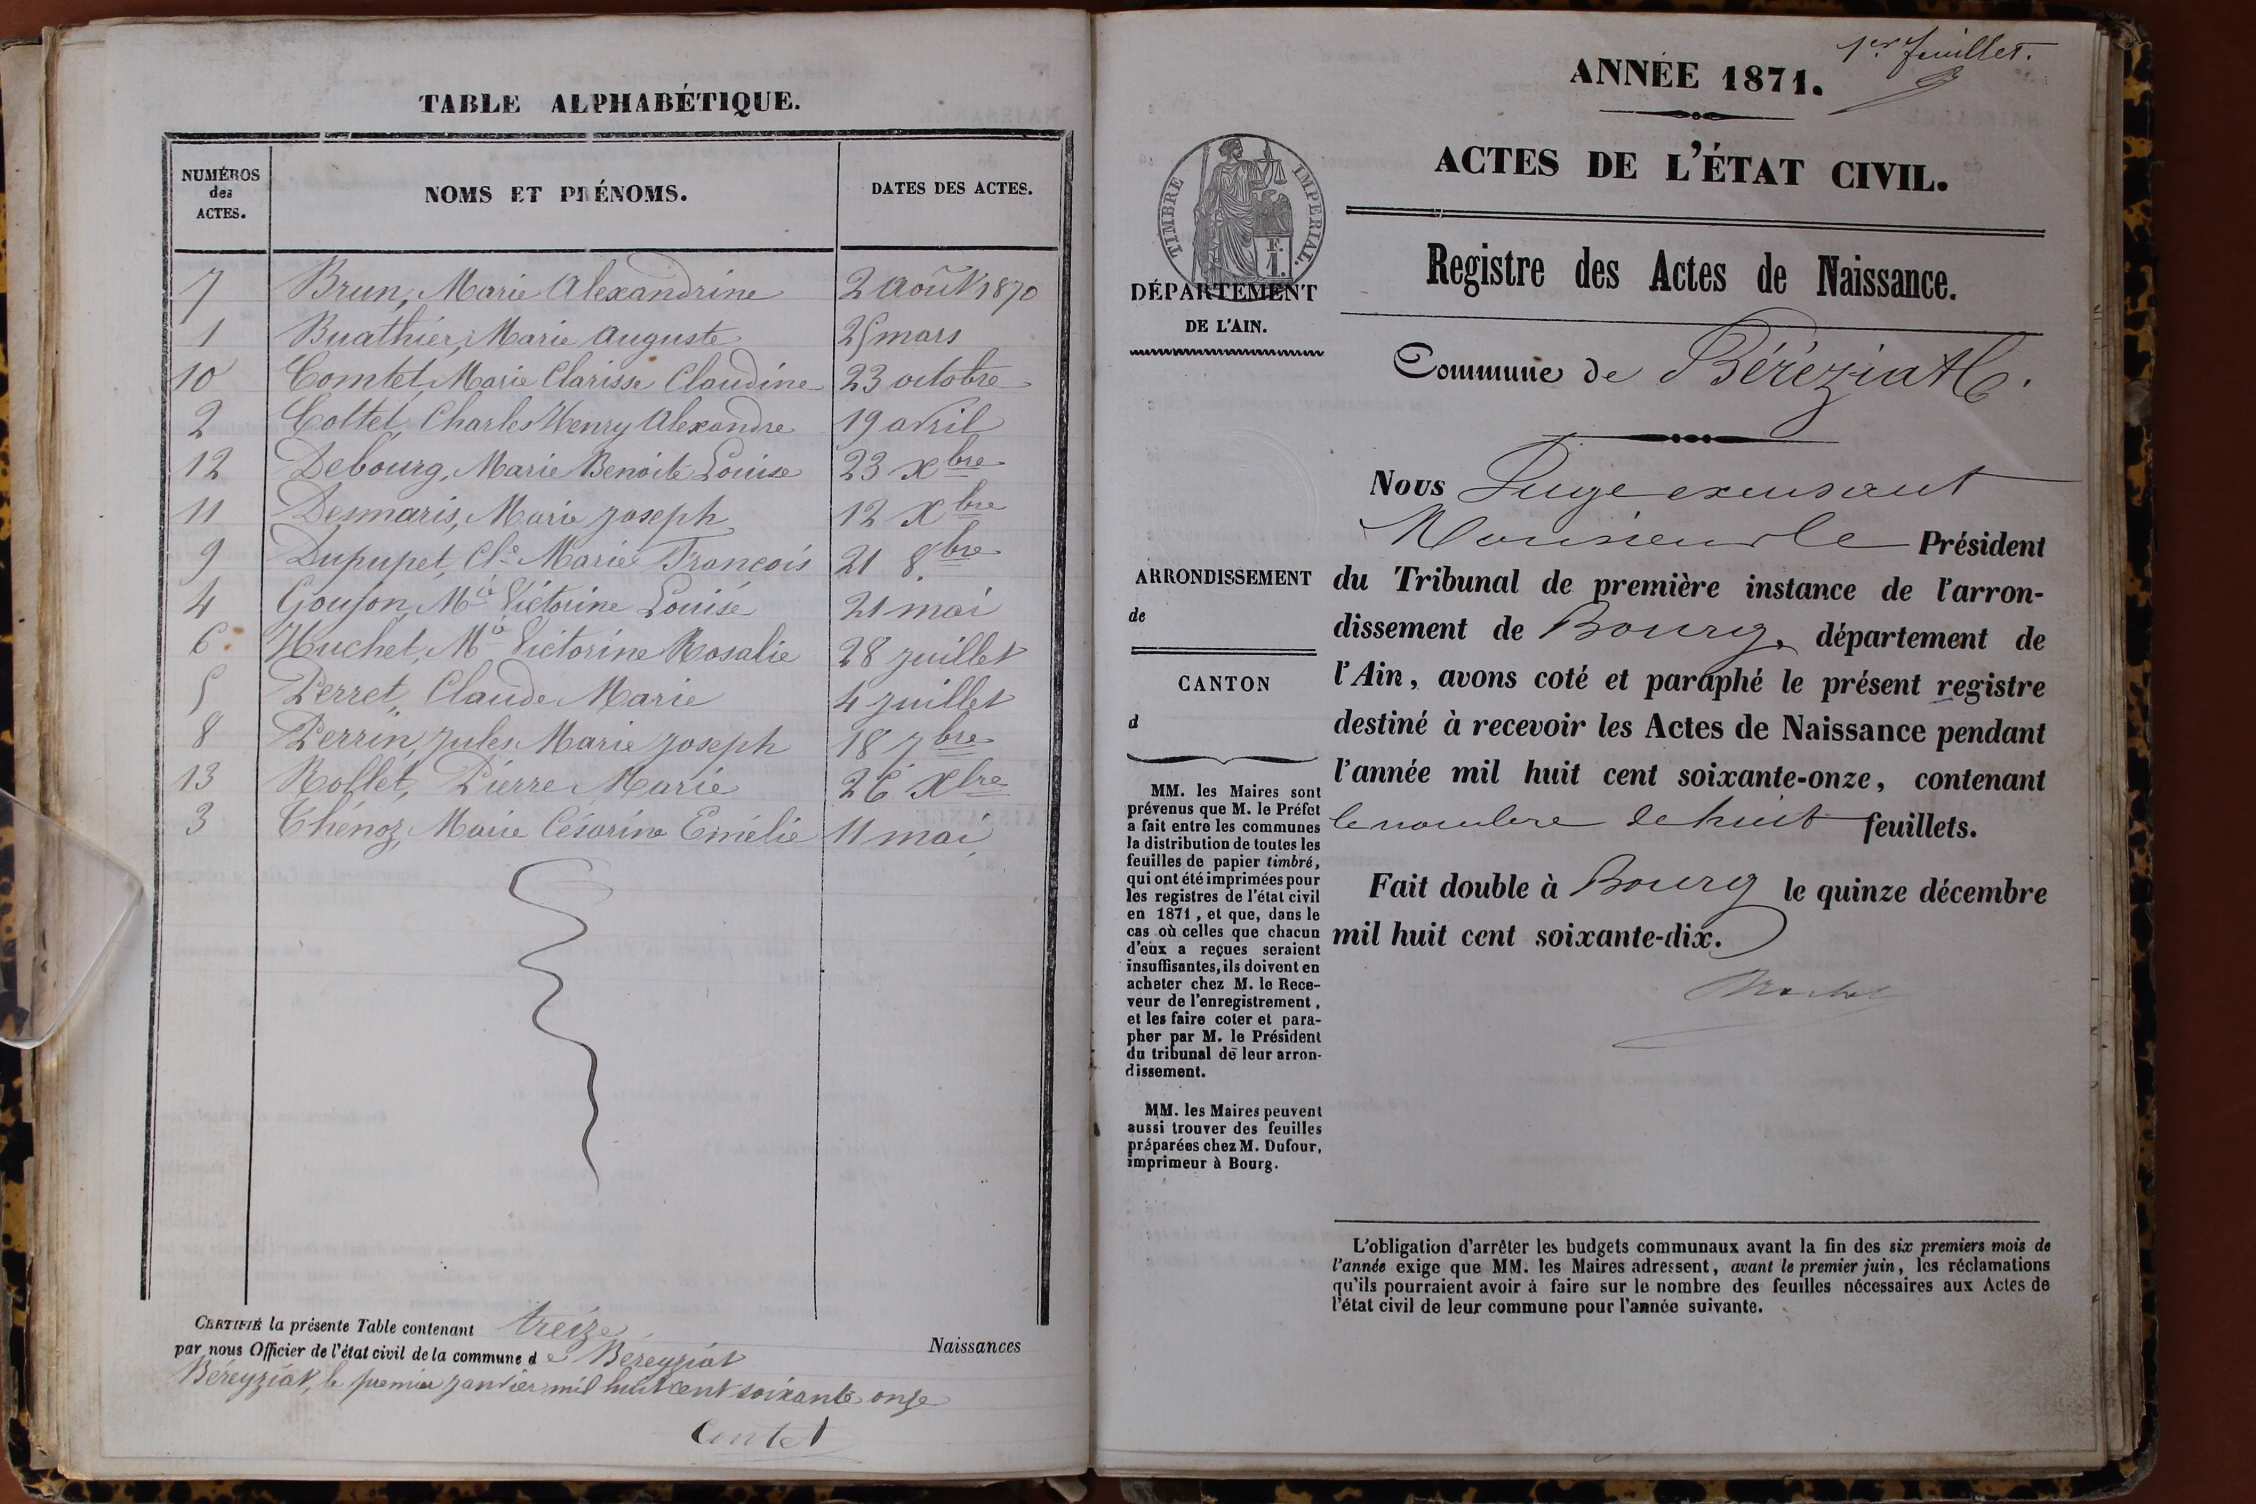 TABLE ALPHABÉTIQUE.
NUMÉROS des ACTES. NOMS ET PRÉNOMS. DATES DES ACTES.
7 Brun, Marie Alexandrine 2 août 1870
1 Buathier, Marie Auguste 25 mars
10 Comtet, Marie Clarisse Claudine 23 octobre
2 Cottet, Charles Henry Alexandre 19 avril
12 Debourg, Marie Benoite Louise 23 xbre
11 Desmaris, Marie Joseph 12 Xbre
9 Dupupet, Cl. Marie François 21 8bre
4 Goujon, Mie Victorine Louise 21 mai
6 Huchet, Mie Victorine Rosalie 28 juillet
5 Perret, Claude Marie 4 juillet
8 Perrin, Jules Marie Joseph 18 7bre
13 Rollet, Pierre Marie 26 Xbre
3 Thénoz, Marie Césarine Emélie 11 mai
CERTIFIÉ la présente Table contenant treize Naissances
par nous Officier de l'état civil de la commune de Béreyziat
Béreyziat, le premier janvier mil huit cent soixante onze
1er feuillet.
ANNÉE 1871.
ACTES DE L'ÉTAT CIVIL.
TIMBRE IMPERIAL.
DÉPARTEMENT
DE L'AIN.
Registre des Actes de Naissance.
Commune de Béréziat
Nous Juge excusant
Monsieur le Président
du Tribunal de première instance de l'arron-
dissement de Bourg, département de
l'Ain, avons coté et paraphé le présent registre
destiné à recevoir les Actes de Naissance pendant
l'année mil huit cent soixante-onze, contenant
le nombre de huit feuillets.
Fait double à Bourg le quinze décembre
mil huit cent soixante-dix.
ARRONDISSEMENT
de
CANTON
d
MM. les Maires sont
prévenus que M. le Préfet
a fait entre les communes
la distribution de toutes les
feuilles de papier timbré,
qui ont été imprimées pour
les registres de l'état civil
en 1871, et que, dans le
cas où celles que chacun
d'eux a reçues seraient
insuffisantes, ils doivent en
acheter chez M. le Rece-
veur de l'enregistrement,
et les faire coter et para-
pher par M. le Président
du tribunal de leur arron-
dissement.
MM. les Maires peuvent
aussi trouver des feuilles
préparées chez M. Dufour,
imprimeur à Bourg.
L'obligation d'arrêter les budgets communaux avant la fin des six premiers mois de
l'année exige que MM. les Maires adressent, avant le premier juin, les réclamations
qu'ils pourraient avoir à faire sur le nombre des feuilles nécessaires aux Actes de
l'état civil de leur commune pour l'année suivante.